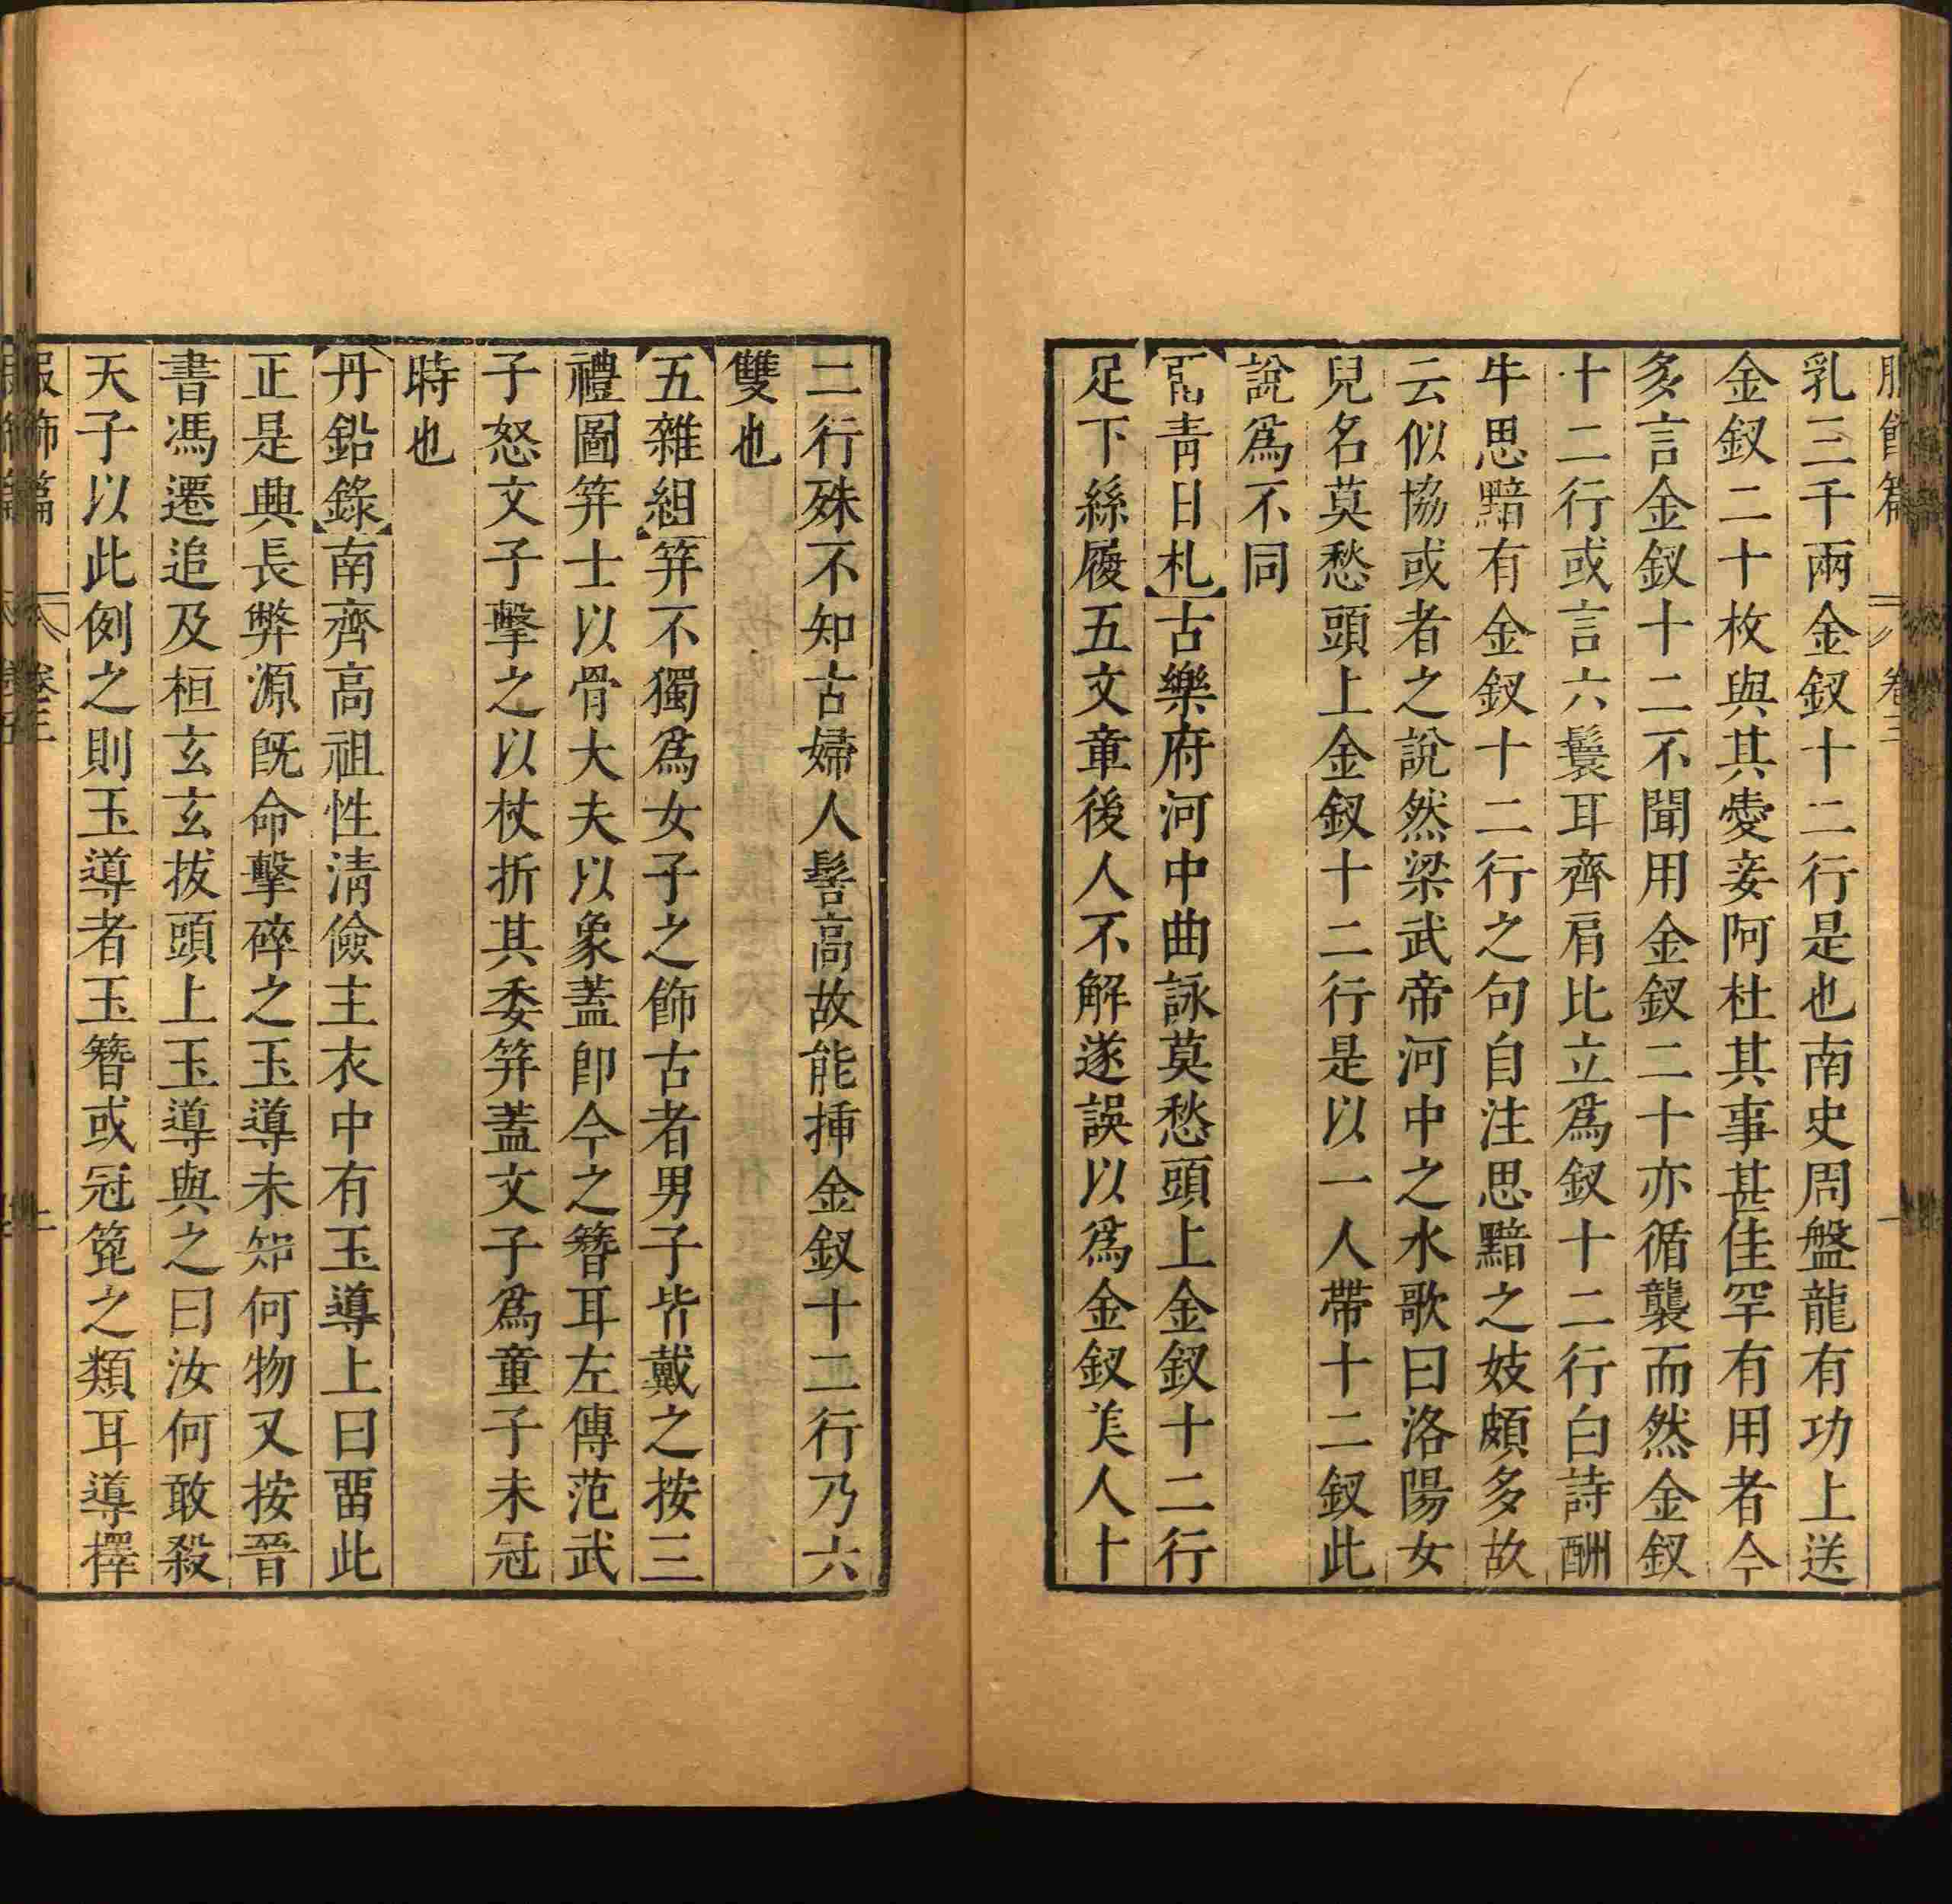 服飾篇 卷三 一
乳三千兩金釵十二行是也南史周盤龍有功上送
金釵二十枚與其愛妾阿杜其事甚佳罕有用者今
多言金釵十二不聞用金釵二十亦循襲而然金釵
十二行或言六鬟耳齊肩比立爲釵十二行白詩酬
牛思黯有金釵十二行之句自注思黯之妓頗多故
云似協或者之說然梁武帝河中之水歌曰洛陽女
兒名莫愁頭上金釵十二行是以一人帶十二釵此
說爲不同
畱青日札古樂府河中曲詠莫愁頭上金釵十二行
足下絲履五文章後人不解遂誤以爲金釵美人十
二行殊不知古婦人髻高故能揷金釵十二行乃六
雙也
五雜組笄不獨爲女子之飾古者男子皆戴之按三
禮圖笄士以骨大夫以象蓋卽今之簪耳左傳范武
子怒文子擊之以杖折其委笄蓋文子爲童子未冠
時也
丹鉛錄南齊高祖性淸儉主衣中有玉導上曰畱此
正是典長弊源旣命擊碎之玉導未知何物又按晉
書馮遷追及桓玄玄拔頭上玉導與之曰汝何敢殺
天子以此例之則玉導者玉簪或冠篦之類耳導擇
服飾篇 卷三